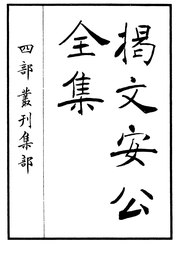 揭文安公
全集
四部叢刊集部